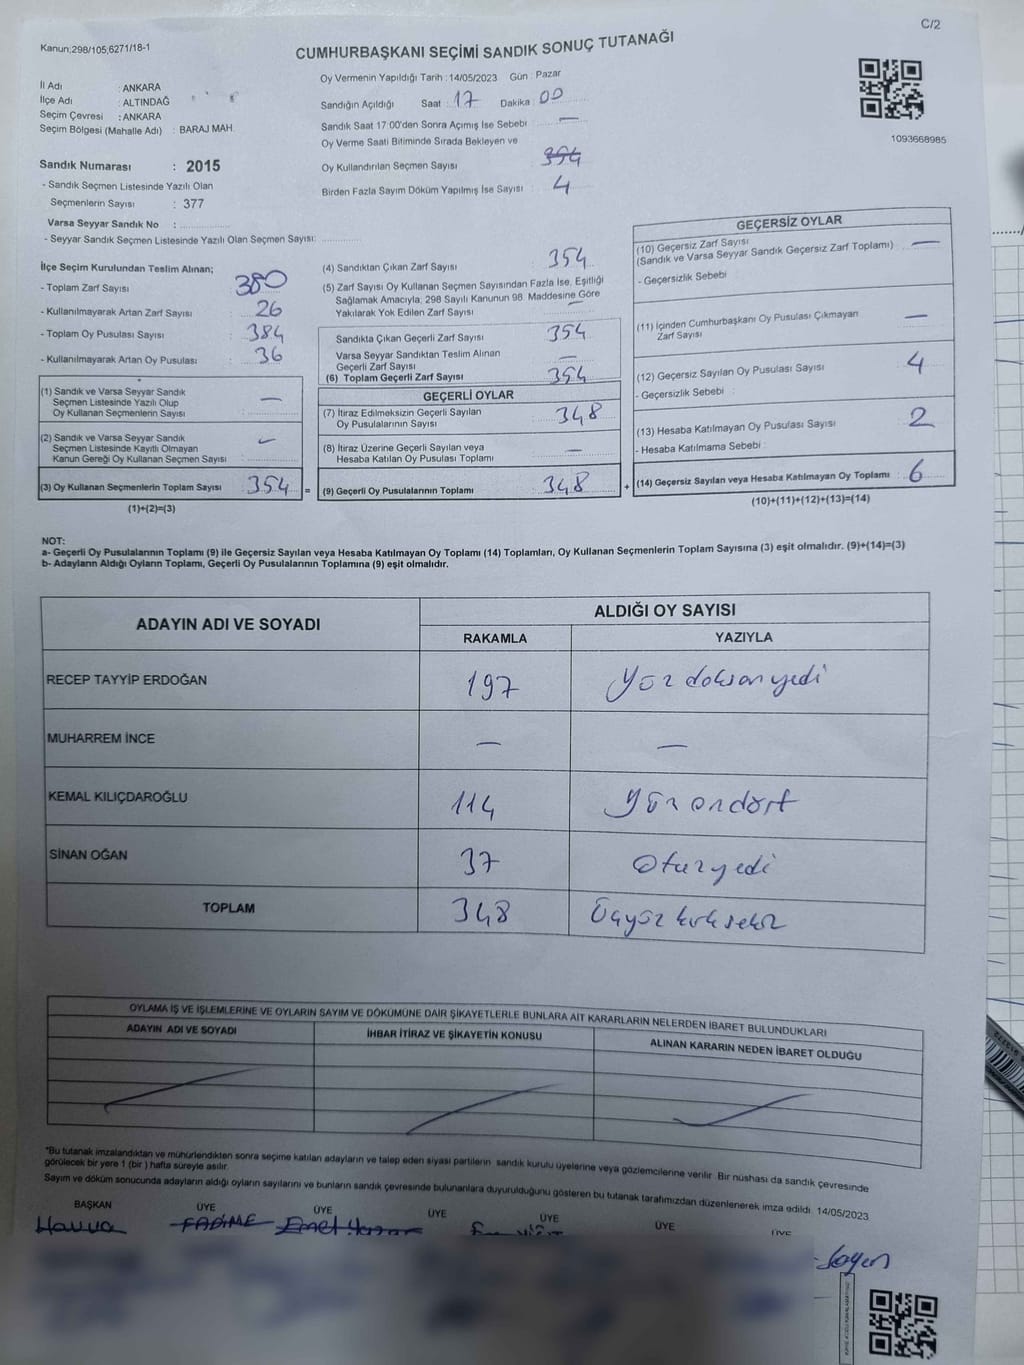 C/2
Kanun;298/105;6271/18-1
CUMHURBAŞKANI SEÇİMİ SANDIK SONUÇ TUTANAĞI
İl Adı : ANKARA
İlçe Adı : ALTINDAĞ
Seçim Çevresi : ANKARA
Seçim Bölgesi (Mahalle Adı) : BARAJ MAH.
Oy Vermenin Yapıldığı Tarih : 14/05/2023 Gün : Pazar
Sandığın Açıldığı Saat : 17 Dakika : 00
Sandık Saat 17:00'den Sonra Açımış İse Sebebi : —
Oy Verme Saati Bitiminde Sırada Bekleyen ve
Oy Kullandırılan Seçmen Sayısı : 354
Birden Fazla Sayım Döküm Yapılmış İse Sayısı : 4
1093668985
Sandık Numarası : 2015
- Sandık Seçmen Listesinde Yazılı Olan
Seçmenlerin Sayısı : 377
Varsa Seyyar Sandık No :
- Seyyar Sandık Seçmen Listesinde Yazılı Olan Seçmen Sayısı:
İlçe Seçim Kurulundan Teslim Alınan;
- Toplam Zarf Sayısı : 380
- Kullanılmayarak Artan Zarf Sayısı : 26
- Toplam Oy Pusulası Sayısı : 384
- Kullanılmayarak Artan Oy Pusulası : 36
(1) Sandık ve Varsa Seyyar Sandık
Seçmen Listesinde Yazılı Olup
Oy Kullanan Seçmenlerin Sayısı : —
(2) Sandık ve Varsa Seyyar Sandık
Seçmen Listesinde Kayıtlı Olmayan
Kanun Gereği Oy Kullanan Seçmen Sayısı : —
(3) Oy Kullanan Seçmenlerin Toplam Sayısı : 354 =
(1)+(2)=(3)
(4) Sandıktan Çıkan Zarf Sayısı : 354
(5) Zarf Sayısı Oy Kullanan Seçmen Sayısından Fazla İse, Eşitliği
Sağlamak Amacıyla; 298 Sayılı Kanunun 98. Maddesine Göre
Yakılarak Yok Edilen Zarf Sayısı : —
Sandıkta Çıkan Geçerli Zarf Sayısı : 354
Varsa Seyyar Sandıktan Teslim Alınan
Geçerli Zarf Sayısı : —
(6) Toplam Geçerli Zarf Sayısı : 354
GEÇERLİ OYLAR
(7) İtiraz Edilmeksizin Geçerli Sayılan
Oy Pusulalarının Sayısı : 348
(8) İtiraz Üzerine Geçerli Sayılan veya
Hesaba Katılan Oy Pusulası Toplamı : —
(9) Geçerli Oy Pusulalarının Toplamı : 348 +
GEÇERSİZ OYLAR
(10) Geçersiz Zarf Sayısı : —
(Sandık ve Varsa Seyyar Sandık Geçersiz Zarf Toplamı)
- Geçersizlik Sebebi :
(11) İçinden Cumhurbaşkanı Oy Pusulası Çıkmayan
Zarf Sayısı : —
(12) Geçersiz Sayılan Oy Pusulası Sayısı : 4
- Geçersizlik Sebebi :
(13) Hesaba Katılmayan Oy Pusulası Sayısı : 2
- Hesaba Katılmama Sebebi :
(14) Geçersiz Sayılan veya Hesaba Katılmayan Oy Toplamı : 6
(10)+(11)+(12)+(13)=(14)
NOT:
a- Geçerli Oy Pusulalarının Toplamı (9) ile Geçersiz Sayılan veya Hesaba Katılmayan Oy Toplamı (14) Toplamları, Oy Kullanan Seçmenlerin Toplam Sayısına (3) eşit olmalıdır. (9)+(14)=(3)
b- Adayların Aldığı Oyların Toplamı, Geçerli Oy Pusulalarının Toplamına (9) eşit olmalıdır.
ADAYIN ADI VE SOYADI
ALDIĞI OY SAYISI
RAKAMLA YAZIYLA
RECEP TAYYİP ERDOĞAN 197 Yüzdoksanyedi
MUHARREM İNCE — —
KEMAL KILIÇDAROĞLU 114 Yüzondört
SİNAN OĞAN 37 Otuzyedi
TOPLAM 348 Üçyüzkırksekiz
OYLAMA İŞ VE İŞLEMLERİNE VE OYLARIN SAYIM VE DÖKÜMÜNE DAİR ŞİKAYETLERLE BUNLARA AİT KARARLARIN NELERDEN İBARET BULUNDUKLARI
ADAYIN ADI VE SOYADI İHBAR İTİRAZ VE ŞİKAYETİN KONUSU ALINAN KARARIN NEDEN İBARET OLDUĞU
*Bu tutanak imzalandıktan ve mühürlendikten sonra seçime katılan adayların ve talep eden siyasi partilerin sandık kurulu üyelerine veya gözlemcilerine verilir. Bir nüshası da sandık çevresinde
görülecek bir yere 1 (bir) hafta süreyle asılır.
Sayım ve döküm sonucunda adayların aldığı oyların sayılarını ve bunların sandık çevresinde bulunanlara duyurulduğunu gösteren bu tutanak tarafımızdan düzenlenerek imza edildi. 14/05/2023
BAŞKAN ÜYE ÜYE ÜYE ÜYE ÜYE ÜYE
Havva FADİME